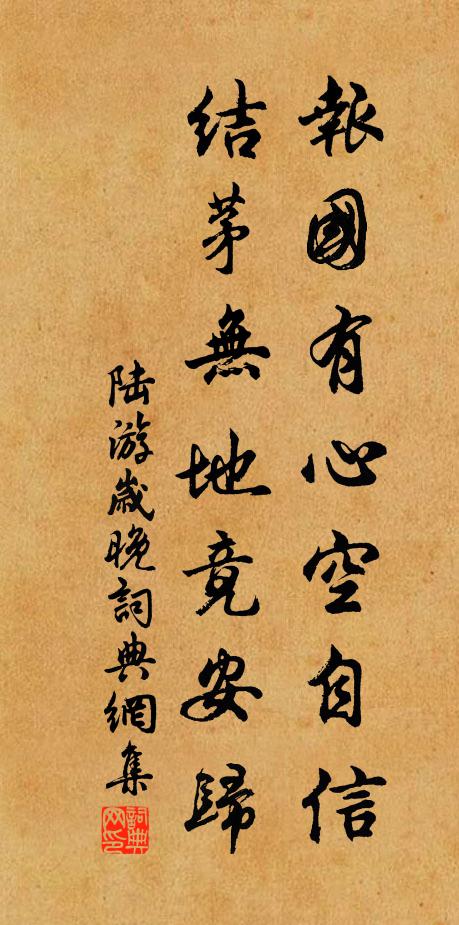 報國有心空自信
結茅無地竟安歸
陆游歲晚詞典網集
詞典网印